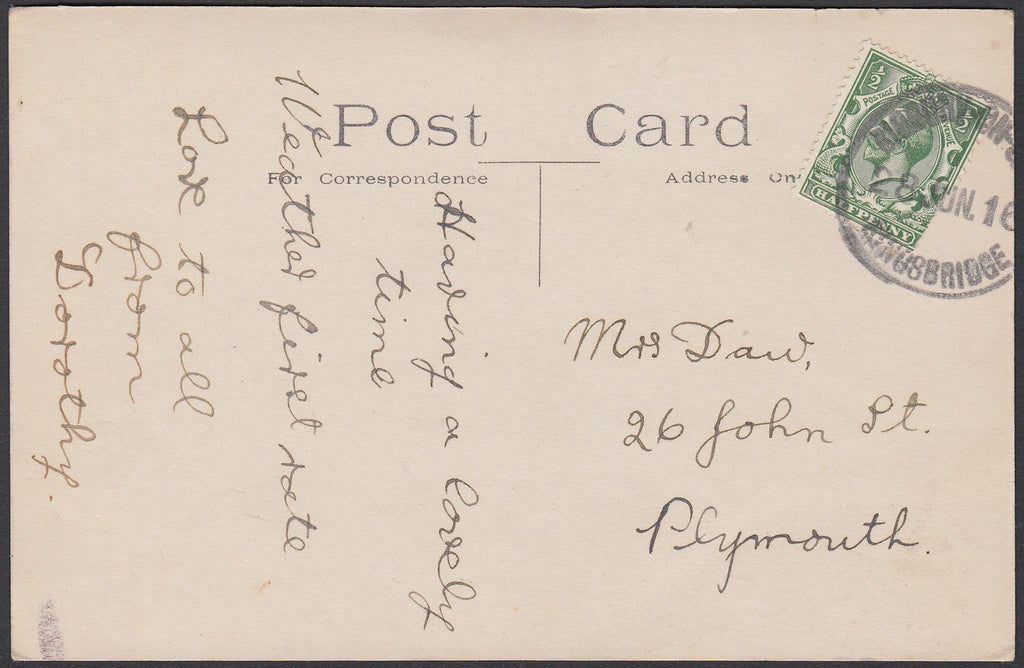 Post Card
For Correspondence
Address
Having a lovely
time
Weather first rate
Love to all
from
Dorothy.
Mrs Daw,
26 John St.
Plymouth.
½ ½
POSTAGE
HALFPENNY
28 JUN. 16
KINGSBRIDGE